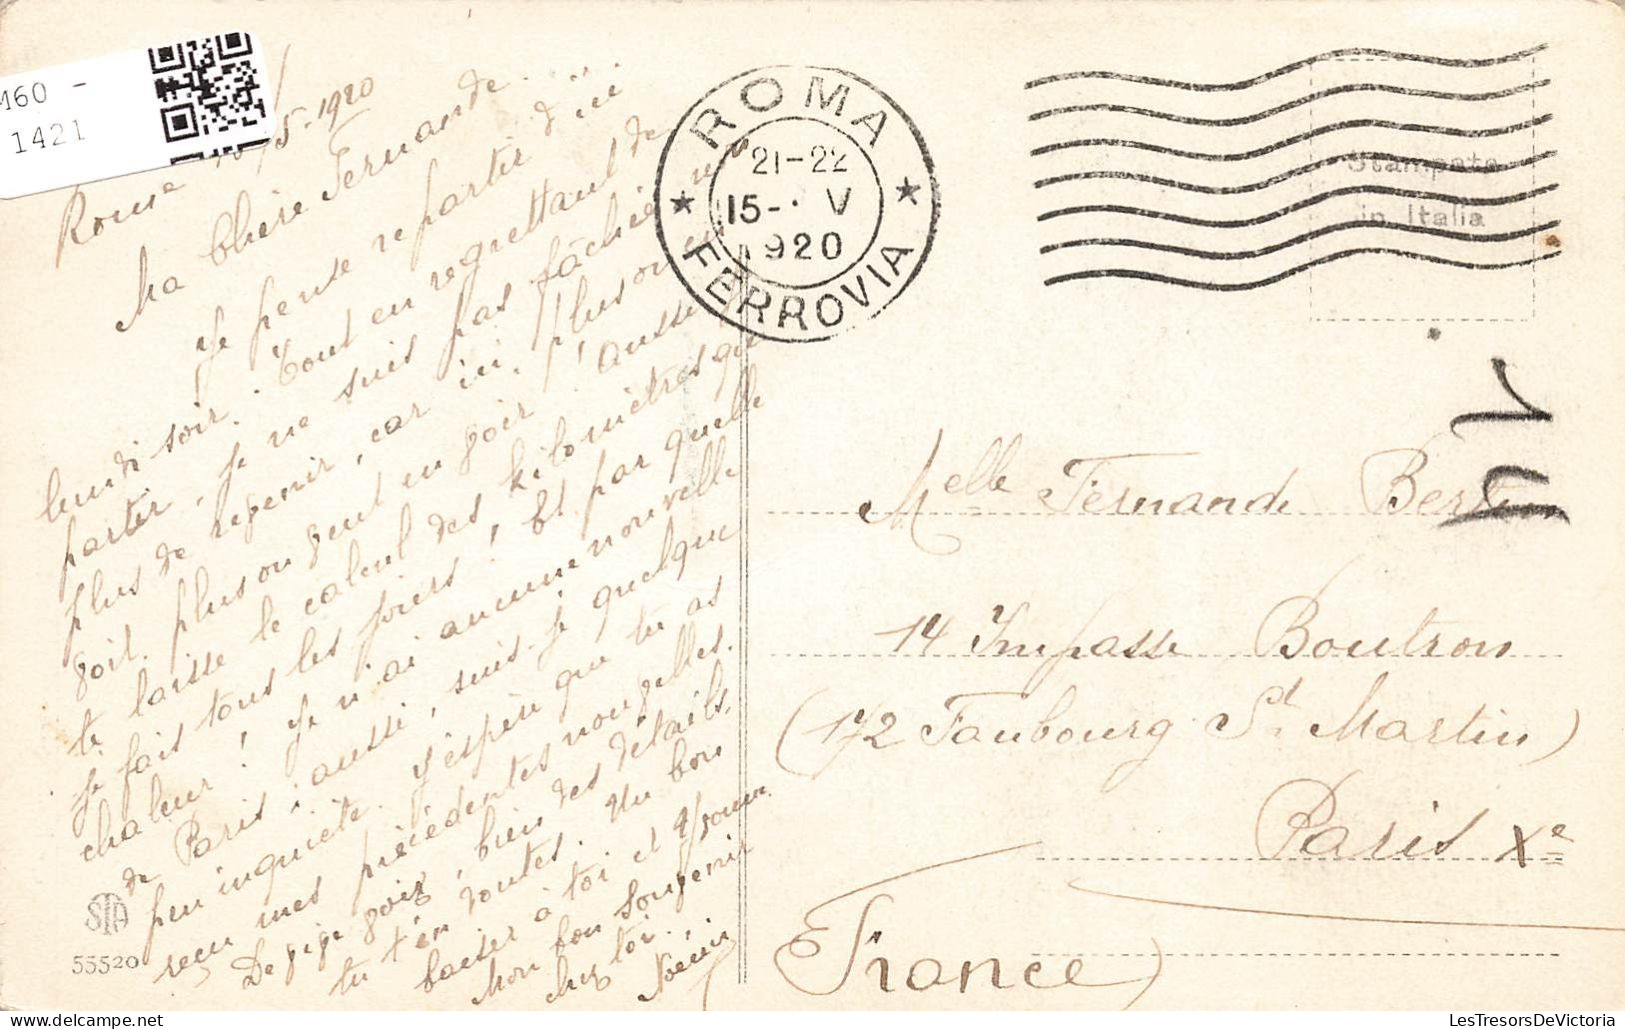 M60 -
1421
Rome 15/5-1920
Ma Chère Fernande.
Je pense repartir d'ici
lundi soir. Tout en regrettant de
partir, je ne suis pas fâchée
plus de revenir, car ici, plus on en
voit, plus on veut en voir! aussi
te laisse le calcul des kilomètres que
je fais tous les jours! Et par quelle
chaleur! Je n'ai aucune nouvelle
de Paris; aussi, suis-je quelque
peu inquiète. J'espère que tu as
reçu mes précédentes nouvelles.
De vive voix, bien des détails,
tu t'en doutes. Un bon
baiser à toi et
Mon bon souvenir
chez toi.
ROMA
FERROVIA
21-22
15-· V
1920
Stampata
in Italia
Melle Fernande
14 Impasse Boutron
(172 Faubourg St Martin)
Paris Xe
(France)
STA
55520
LesTresorsDeVictoria